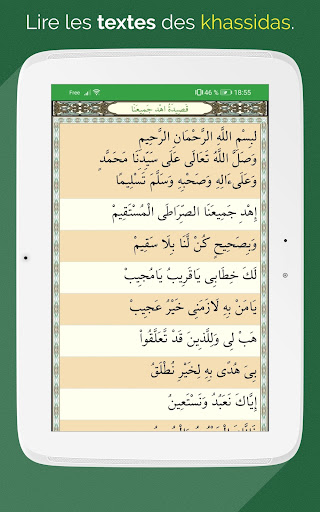 Lire les textes des khassidas.
Free 46 % 18:55
قَصِيدَةُ اهْدِ جَمِيعَنَا
بِسْمِ اللَّهِ الرَّحْمَانِ الرَّحِيمِ
وَصَلَّ اللَّهُ تَعَالَى عَلَى سَيِّدِنَا مَحَمَّدٍ
وَعَلَىءَالِهِ وَصَحْبِهِ وَسَلَّمَ تَسْلِيمًا
إِهْدِ جَمِيعَنَا الصِّرَاطَى الْمُسْتَقِيمْ
وَبِصَحِيحٍ كُنْ لَّنَا بِلَا سَقِيمْ
لَكَ خِطَابِى يَاقَرِيبُ يَامُجِيبْ
يَامَنْ بِهِ لَازَمَنِى خَيْرُ عَجِيبْ
هَبْ لِى وَلِلَّذِينَ قَدْ تَّعَلَّقُواْ
بِىَ هُدًى بِهِ لِخَيْرٍ نُطْلَقُ
إِيَّاكَ نَعْبُدُ وَنَسْتَعِينُ